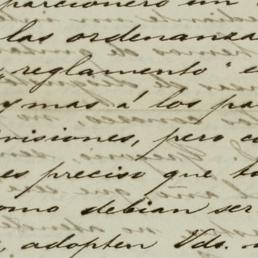 parcionero un
las ordenanza
reglamento" e
y mas á los pa
visiones, pero c
es preciso que to
omo debian ser
, adopten Vds.